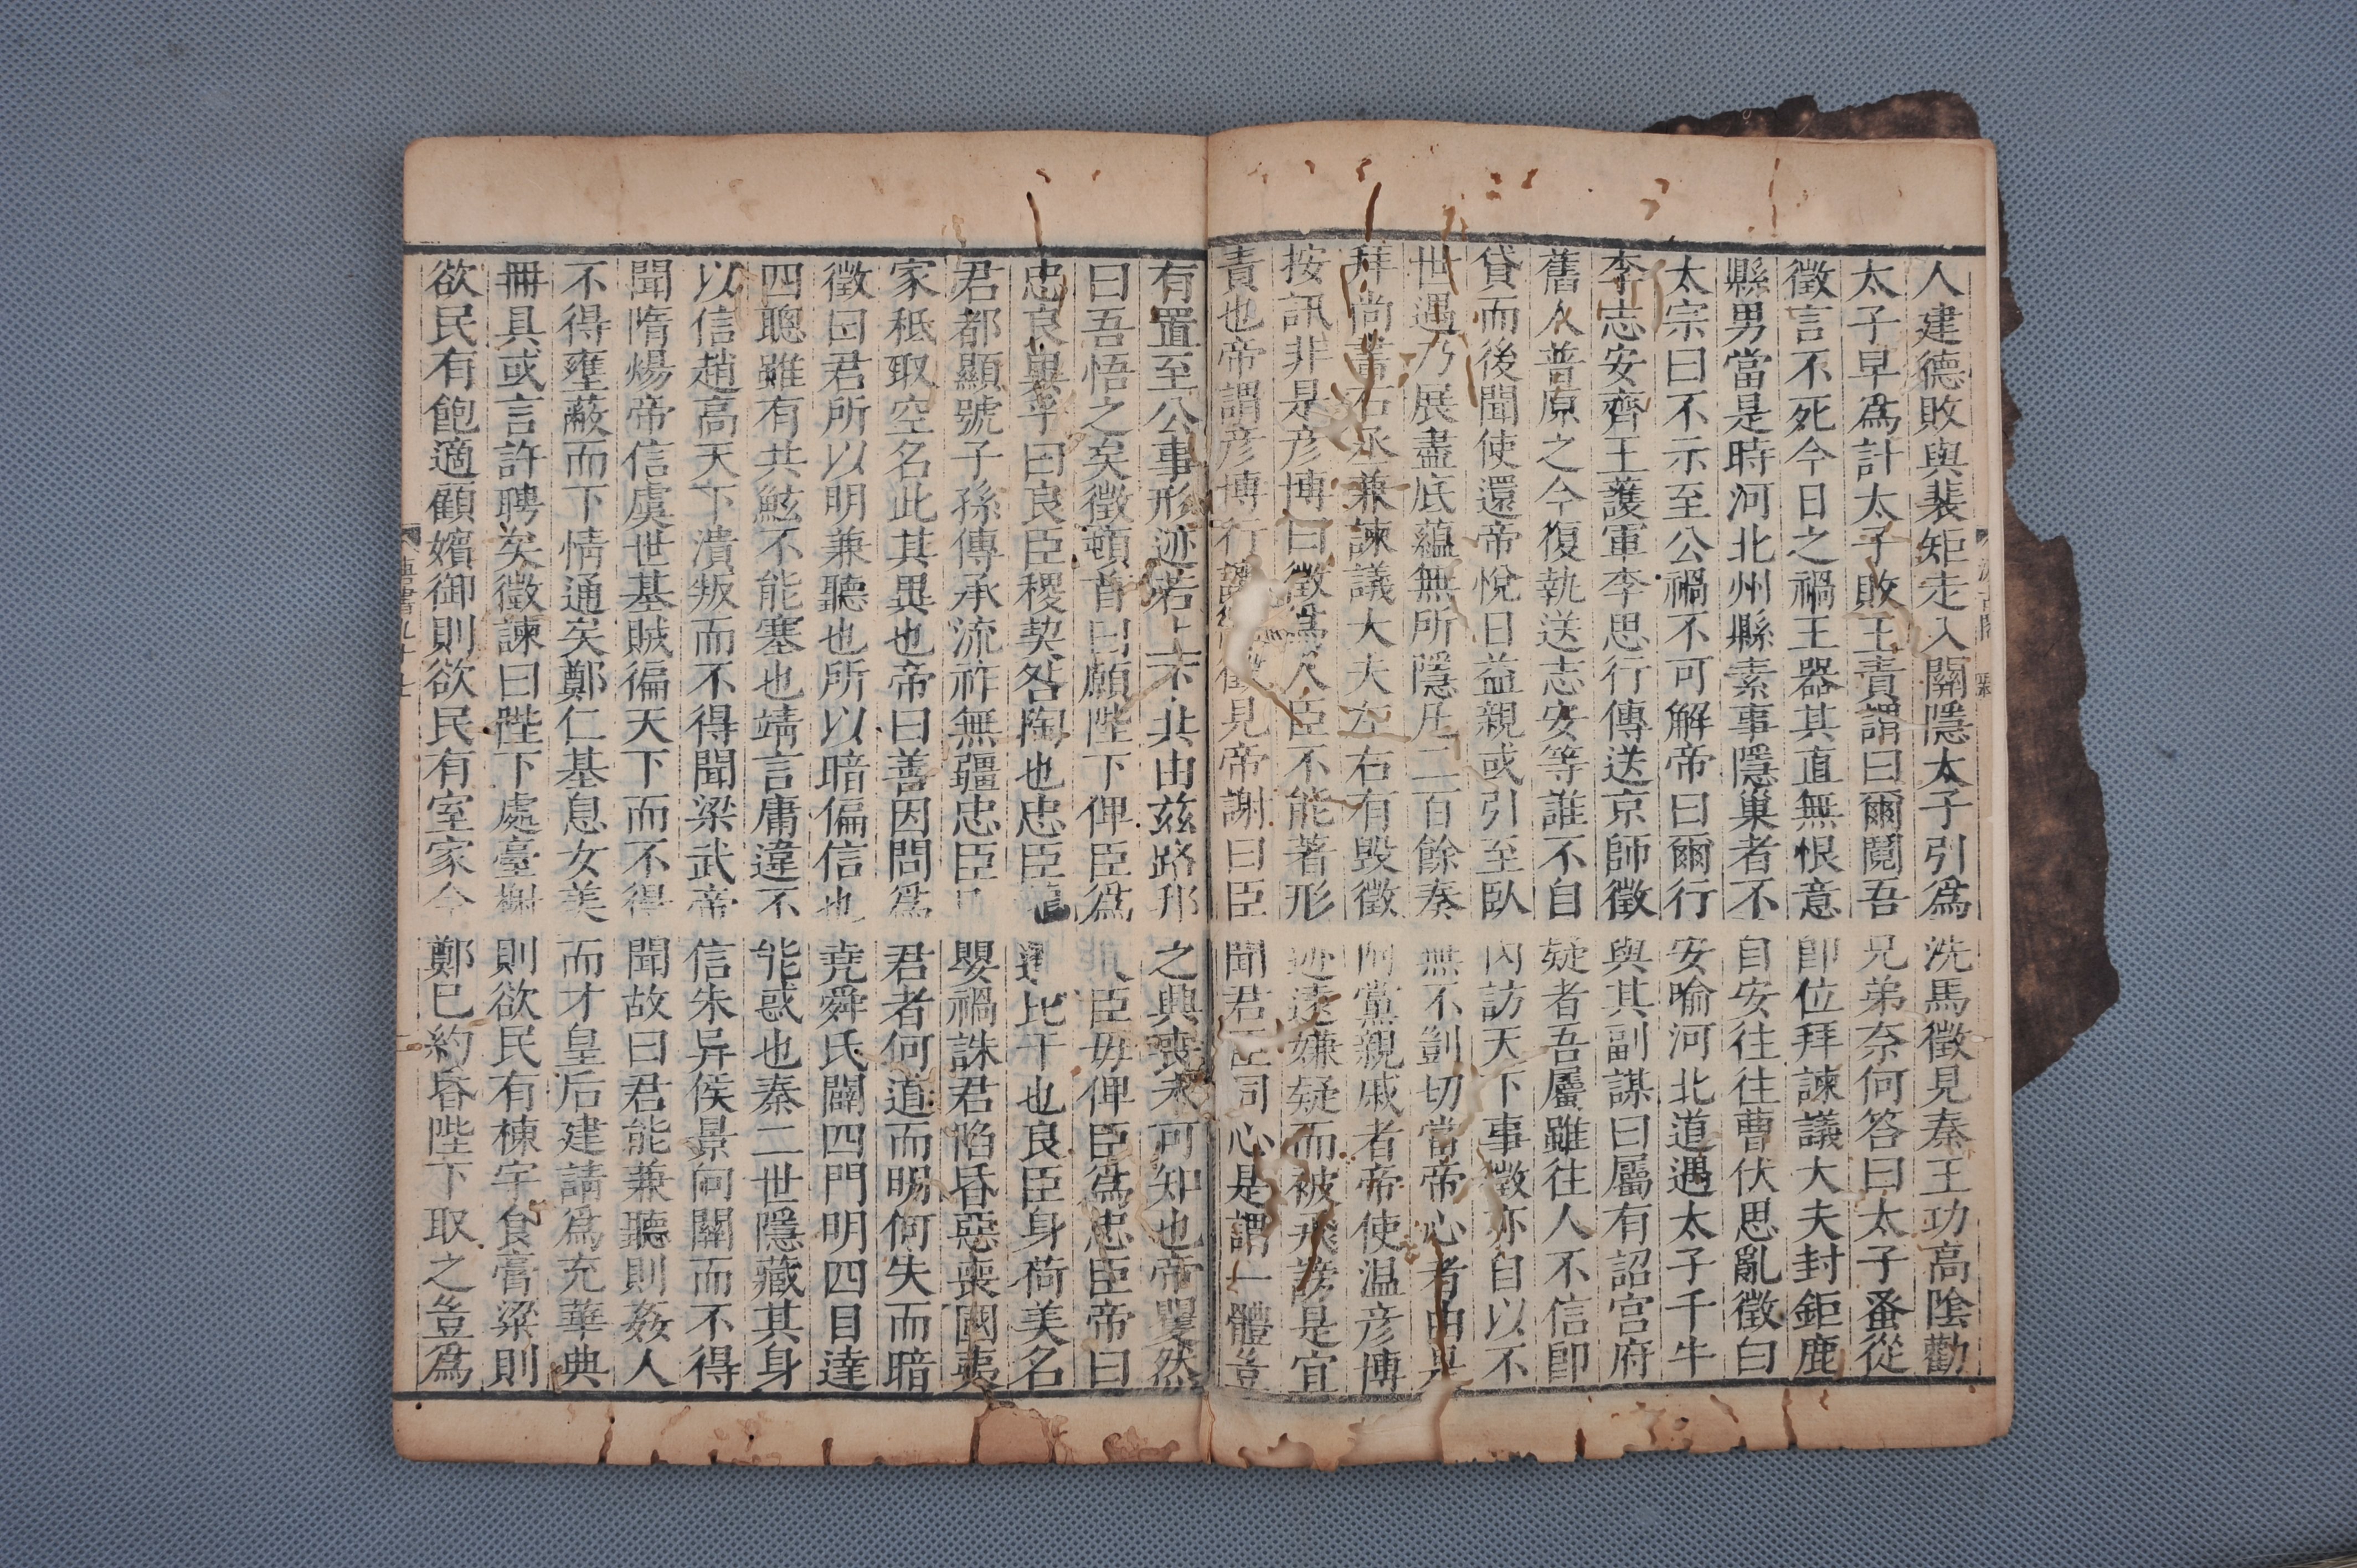 人建德敗與裴矩走入關隱太子引爲洗馬徵見秦王功高陰勸
太子早爲計太子敗王責謂曰爾鬩吾兄弟奈何答曰太子蚤從
徵言不死今日之禍王器其直無恨意卽位拜諫議大夫封鉅鹿
縣男當是時河北州縣素事隱巢者不自安往往曹伏思亂徵白
太宗曰不示至公禍不可解帝曰爾行安喻河北道遇太子千牛
李志安齊王護軍李思行傳送京師徵與其副謀曰屬有詔宮府
舊人普原之今復執送志安等誰不自疑者吾屬雖往人不信卽
貸而後聞使還帝悅日益親或引至臥內訪天下事徵亦自以不
世遇乃展盡底蘊無所隱凡二百餘奏無不剴切當帝心者由是
拜尚書右丞兼諫議大夫左右有毀徵阿黨親戚者帝使温彥博
按訊非是彥博曰徵爲人臣不能著形迹遠嫌疑而被飛謗是宜
責也帝謂彥博行讓徵見帝謝曰臣聞君臣同心是謂一體豈
有置至公事形迹若上下共由茲路邦之興喪未可知也帝矍然
曰吾悟之矣徵頓首曰願陛下俾臣爲良臣毋俾臣爲忠臣帝曰
忠良異乎曰良臣稷契咎陶也忠臣龍逄比干也良臣身荷美名
君都顯號子孫傳承流祚無疆忠臣己嬰禍誅君陷昏惡喪國夷
家秪取空名此其異也帝曰善因問爲君者何道而明何失而暗
徵曰君所以明兼聽也所以暗偏信也堯舜氏闢四門明四目達
四聰雖有共鮌不能塞也靖言庸違不能惑也秦二世隱藏其身
以信趙高天下潰叛而不得聞梁武帝信朱异侯景向關而不得
聞隋煬帝信虞世基賊徧天下而不得聞故曰君能兼聽則姦人
不得壅蔽而下情通矣鄭仁基息女美而才皇后建請爲充華典
冊具或言許聘矣徵諫曰陛下處臺榭則欲民有棟宇食膏粱則
欲民有飽適顧嬪御則欲民有室家今鄭已約昏陛下取之豈爲
唐書九十七